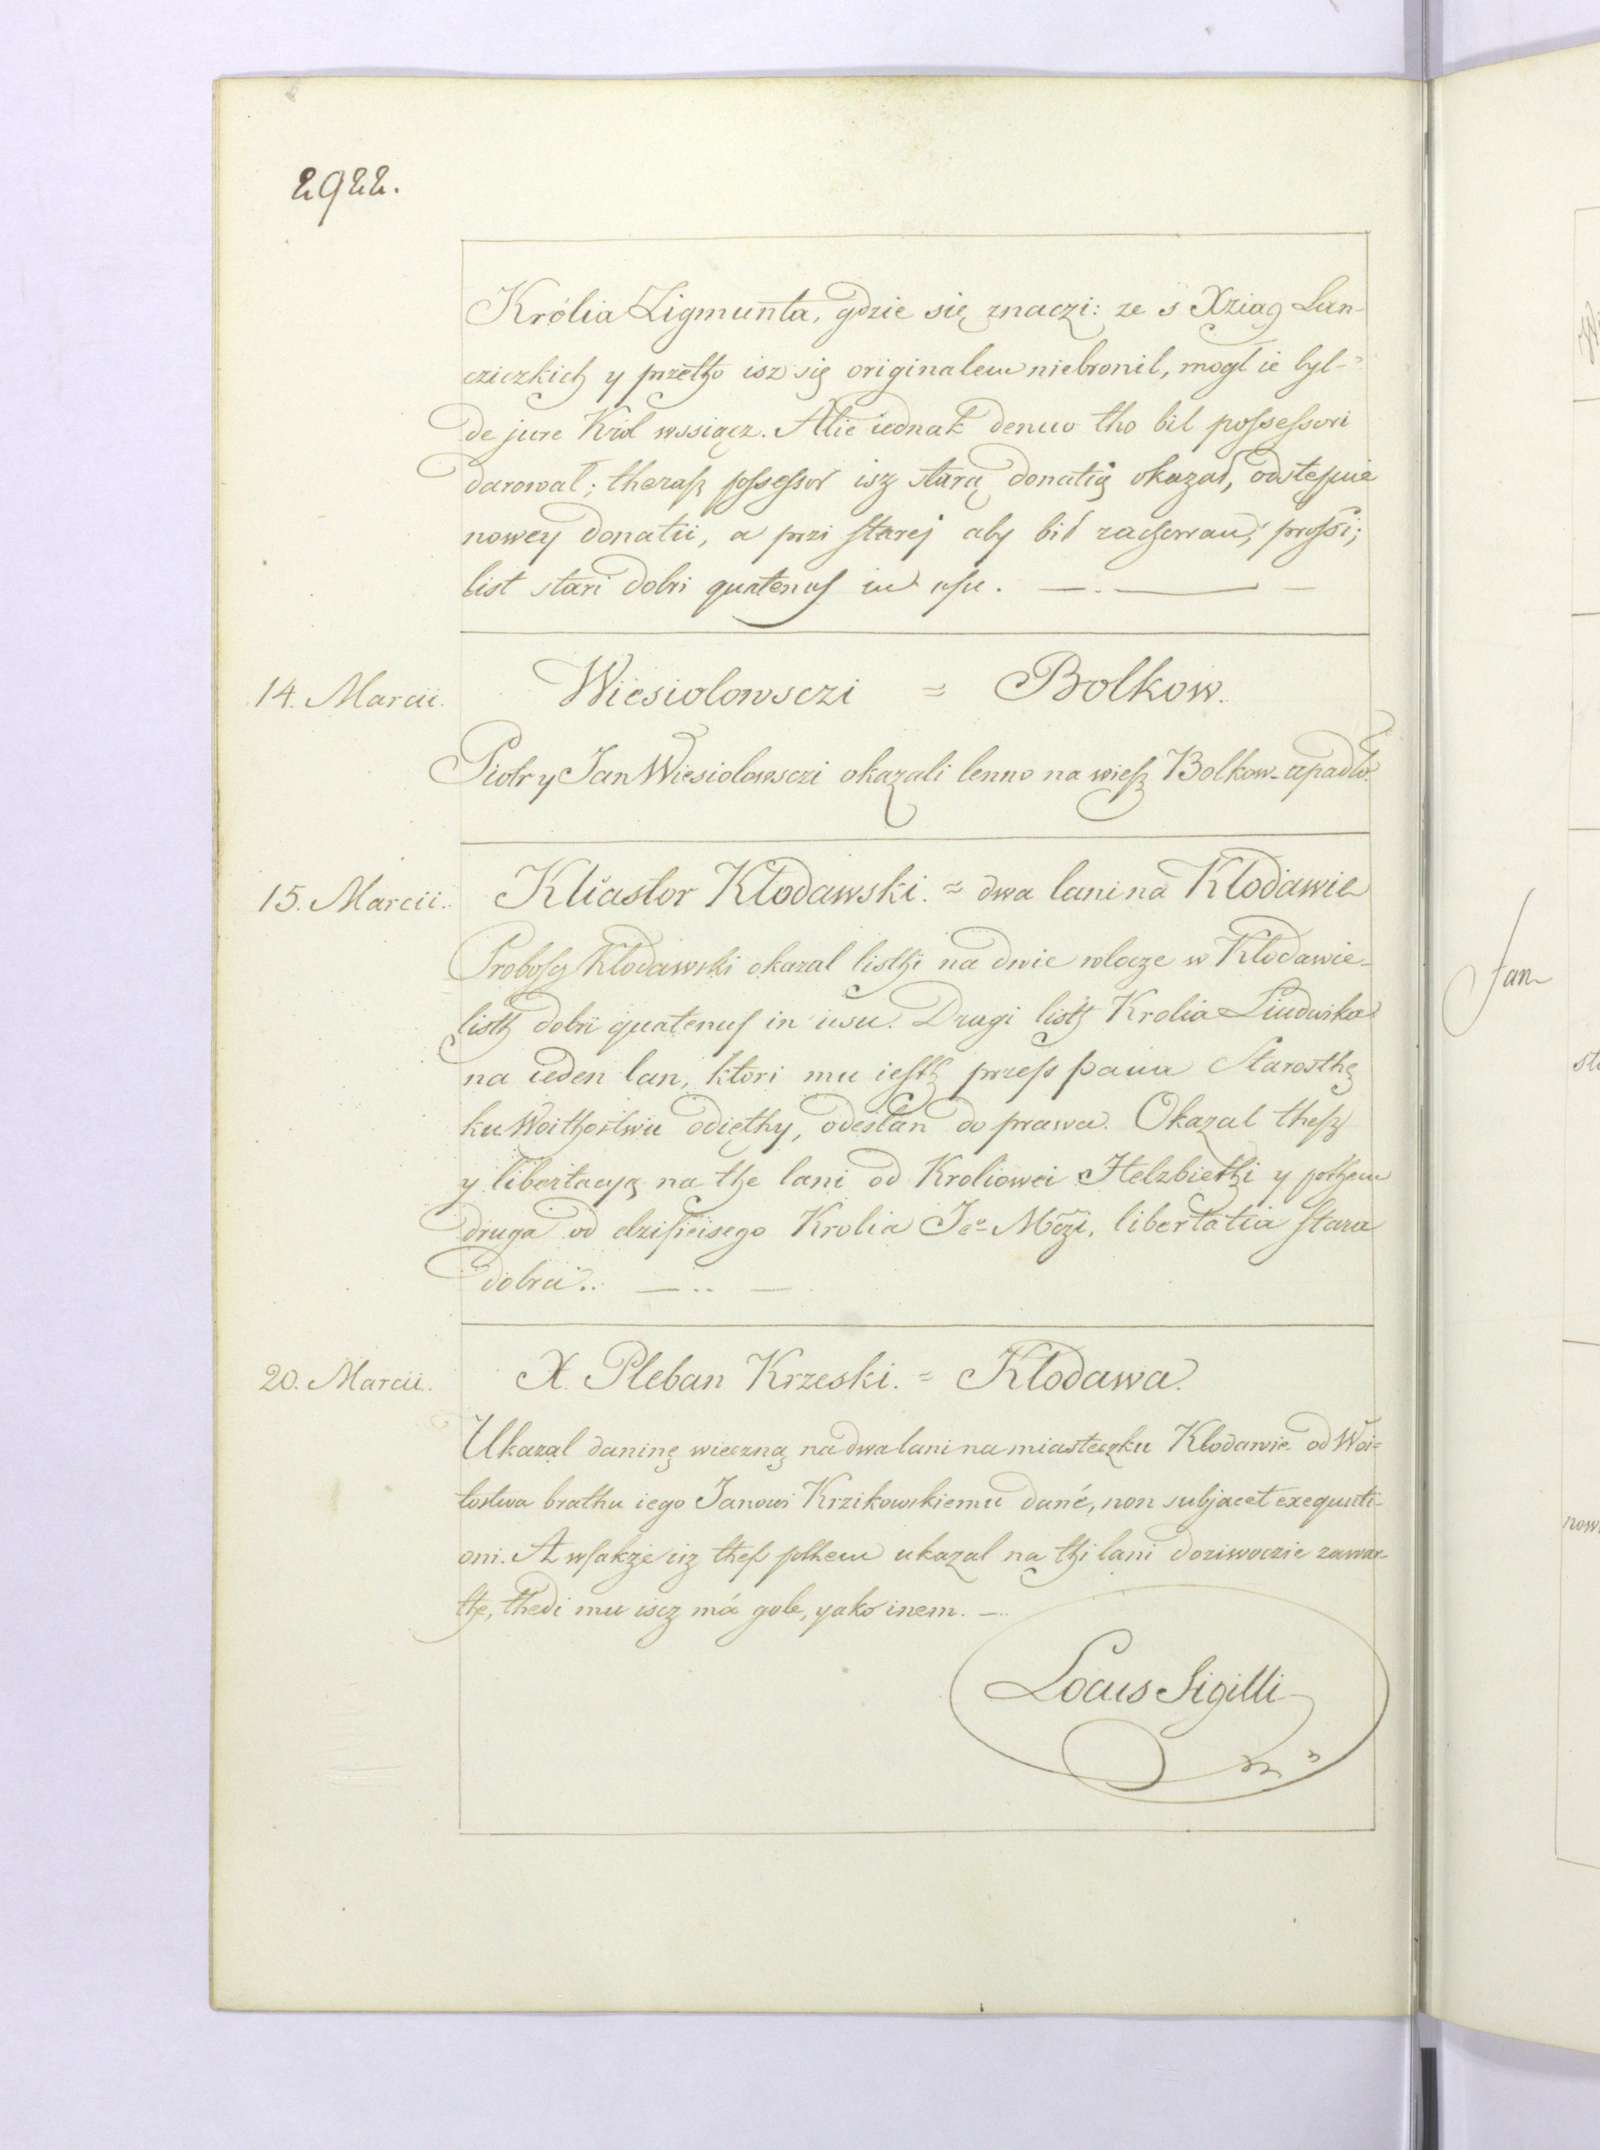 2922.
Królia Zigmunta, gdzie się znaczi: ze s Xziąg Lan-
cziczkich y przetho isz się originalem niebronil, mogł ie był
de jure Król wssiącz. Alie iednak denuo tho bil possessori
darowal; therasz possessor isz starą donatią okazał, odstępuie
nowey donatii, a przi starej aby bił zachowan, prossi;
list stari dobri quatenus in usu.
14. Marcii. Wiesiolowsczi = Bolkow.
Piotr y Jan Wiesiolowsczi okazali lenno na wiesz Bolkow upadło.
15. Marcii. Kliastor Kłodawski. = dwa lani na Kłodawie
Probosz Kłodawski okazal listhi na dwie wlocze w Kłodawie
listh dobri quatenus in usu. Drugi listh Krolia Liudwika
na ieden lan, ktori mu iesth przess pana Starosthę
ku Woithostwu odięthy, odesłan do prawa. Okazal thesz
y libertacyą na the lani od Kroliowei Helzbiethi y pothem
druga od dzisieisego Krolia Je⁰ Mczi, libertatia stara
dobra.
20. Marcii. X. Pleban Krzeski. = Kłodawa.
Ukazal daninę wieczną na dwa lani na miasteczku Kłodawie od Woi-
tostwa brathu iego Janowi Krzikowskiemu dané, non subjacet exequuti-
oni. A wsakże iz thesz pothem ukazal na thi lani doziwoczie zawar-
the, thedi mu iscz má gole, yako inem.
Locus Sigilli
Jan